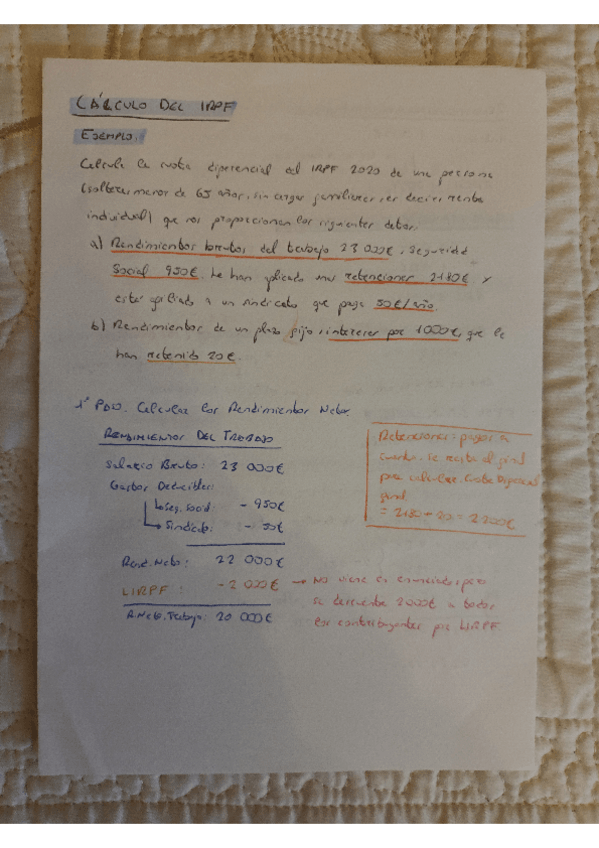 CÁLCULO DEL IRPF
EJEMPLO:
Calcula la cuota diferencial del IRPF 2020 de una persona
(soltera menor de 65 años, sin cargas familiares, es decir, renta
individual) que nos proporciona los siguientes datos:
a) Rendimientos brutos del trabajo 23 000€, Seguridad
Social 950€. Le han aplicado unas retenciones 2180€ y
estar afiliado a un sindicato que paga 50€/año.
b) Rendimientos de un plazo fijo, intereses por 1000€, que le
han retenido 20€.
1º PASO. Calcular los Rendimientos Netos.
RENDIMIENTOS DEL TRABAJO
Salario Bruto: 23 000€
Gastos Deducibles:
Seg. Social - 950€
Sindicato: - 50€
Rend. Neto: 22 000€
LIRPF: - 2 000€ → No viene en enunciado, pero
se descuenta 2000€ a todos
los contribuyentes por LIRPF
R. Neto. Trabajo: 20 000€
Retenciones: pagos a
cuenta. Se resta al final
para calcular. Cuota Diferencial
final
= 2180 + 20 = 2200€